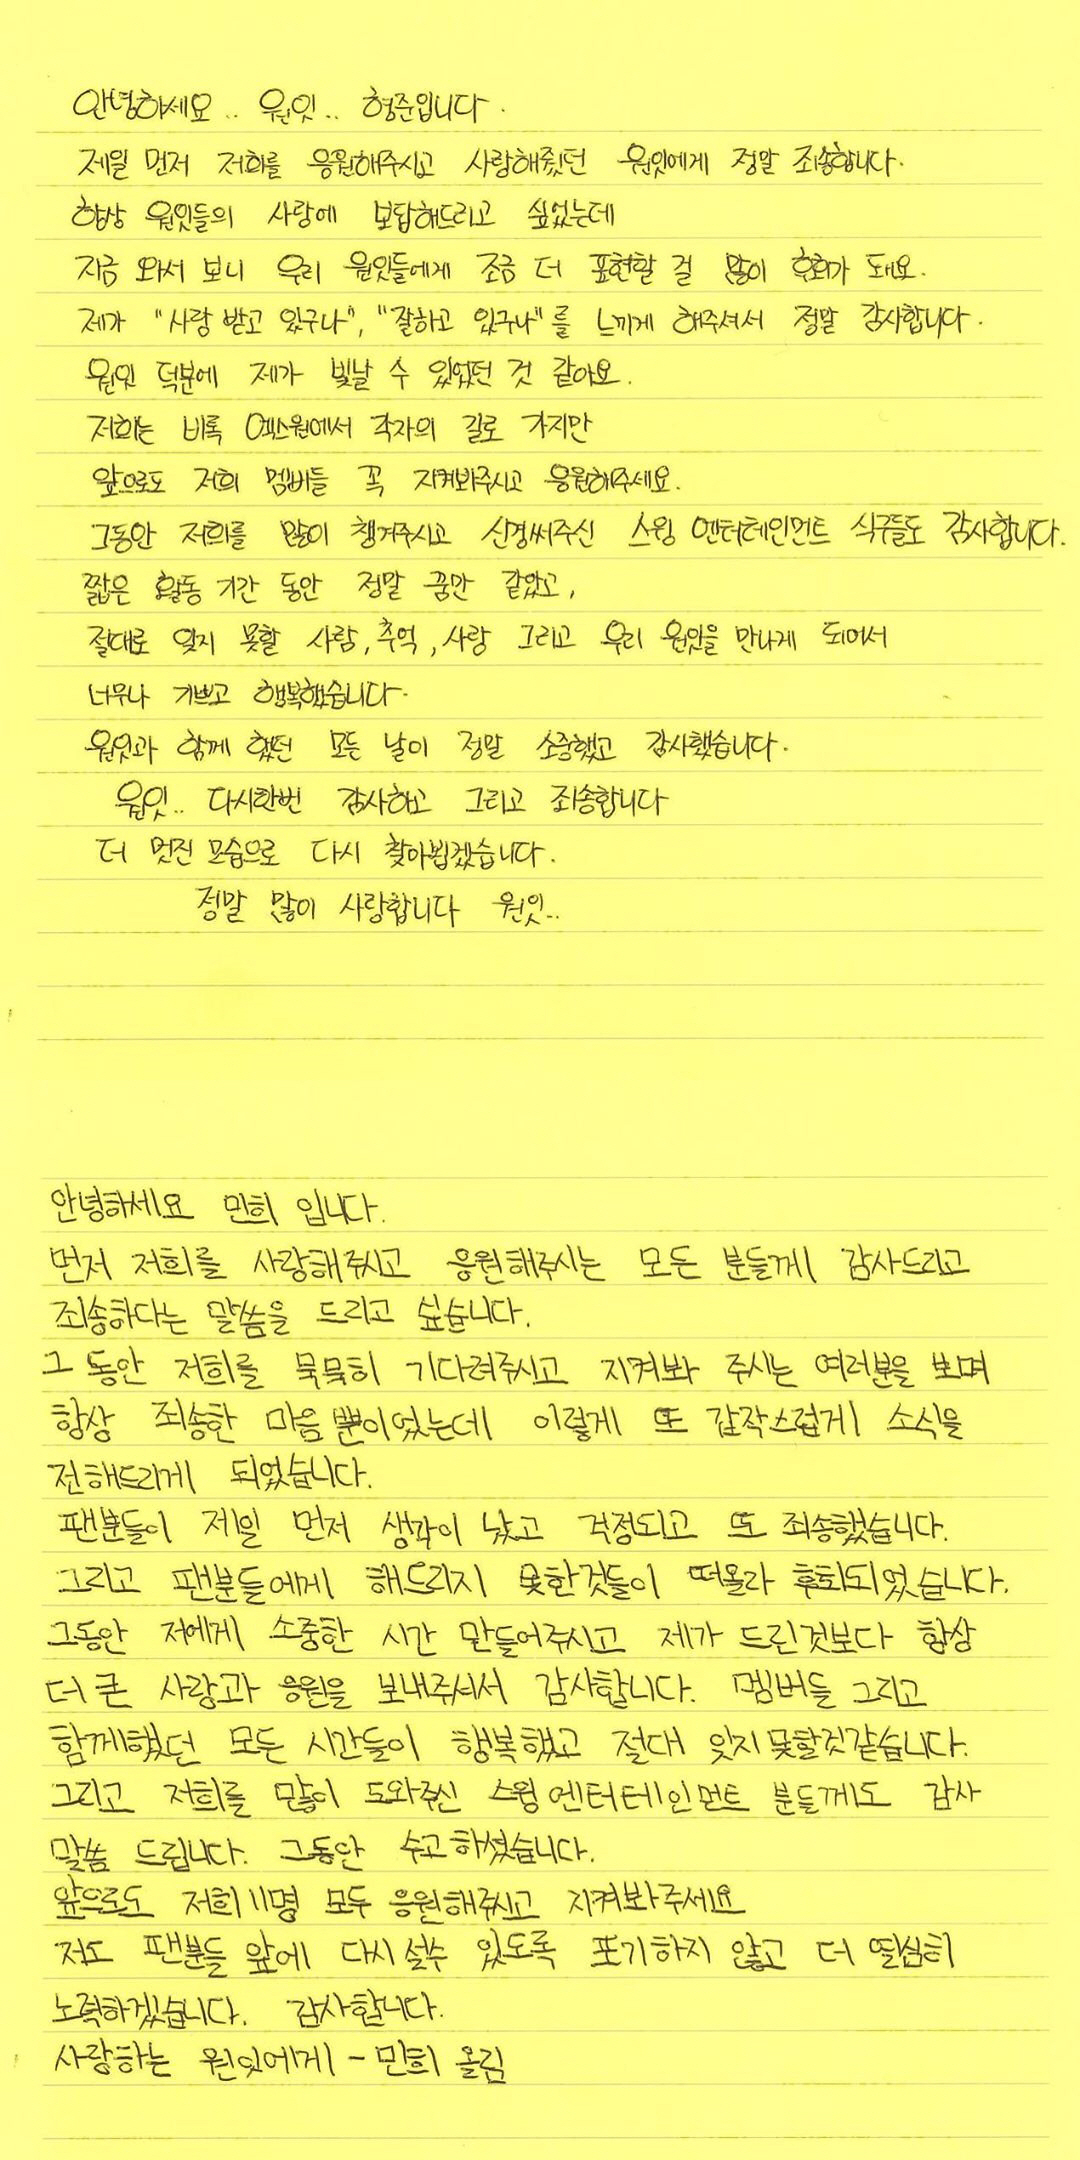 안녕하세요.. 원잇.. 형준입니다.
제일 먼저 저희를 응원해주시고 사랑해줬던 원잇에게 정말 죄송합니다.
항상 원잇들의 사랑에 보답해드리고 싶었는데
지금 와서 보니 우리 원잇들에게 조금 더 표현할 걸 많이 후회가 돼요.
제가 "사랑 받고 있구나", "잘하고 있구나"를 느끼게 해주셔서 정말 감사합니다.
원잇 덕분에 제가 빛날 수 있었던 것 같아요.
저희는 비록 엑스원에서 각자의 길로 가지만
앞으로도 저희 멤버들 꼭 지켜봐주시고 응원해주세요.
그동안 저희를 많이 챙겨주시고 신경써주신 스윙 엔터테인먼트 식구들도 감사합니다.
짧은 활동 기간 동안 정말 꿈만 같았고,
절대로 잊지 못할 사람, 추억, 사랑 그리고 우리 원잇을 만나게 되어서
너무나 기쁘고 행복했습니다.
원잇과 함께 했던 모든 날이 정말 소중했고 감사했습니다.
원잇.. 다시한번 감사하고 그리고 죄송합니다
더 멋진 모습으로 다시 찾아뵙겠습니다.
정말 많이 사랑합니다 원잇..
안녕하세요 민희 입니다.
먼저 저희를 사랑해주시고 응원해주시는 모든 분들께 감사드리고
죄송하다는 말씀을 드리고 싶습니다.
그 동안 저희를 묵묵히 기다려주시고 지켜봐 주시는 여러분을 보며
항상 죄송한 마음 뿐이였는데 이렇게 또 갑작스럽게 소식을
전해드리게 되었습니다.
팬분들이 제일 먼저 생각이 났고 걱정되고 또 죄송했습니다.
그리고 팬분들에게 해드리지 못한것들이 떠올라 후회되었습니다.
그동안 저에게 소중한 시간 만들어주시고 제가 드린것보다 항상
더 큰 사랑과 응원을 보내주셔서 감사합니다. 멤버들 그리고
함께했던 모든 시간들이 행복했고 절대 잊지못할것같습니다.
그리고 저희를 많이 도와주신 스윙엔터테인먼트 분들께도 감사
말씀 드립니다. 그동안 수고하셨습니다.
앞으로도 저희 11명 모두 응원해주시고 지켜봐주세요
저도 팬분들 앞에 다시 설수 있도록 포기하지 않고 더 열심히
노력하겠습니다. 감사합니다.
사랑하는 원잇에게 - 민희 올림